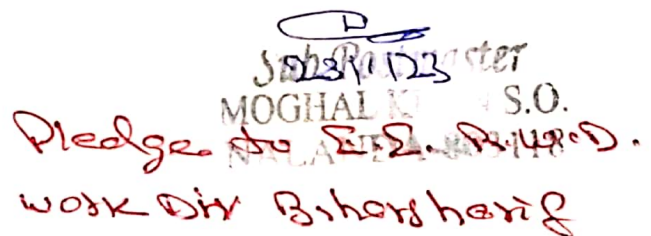 Sub Postmaster
23/1/23
MOGHAL K S.O.
Pledge to E.E. R.W.D.
NALANDA
work Div Biharsharif